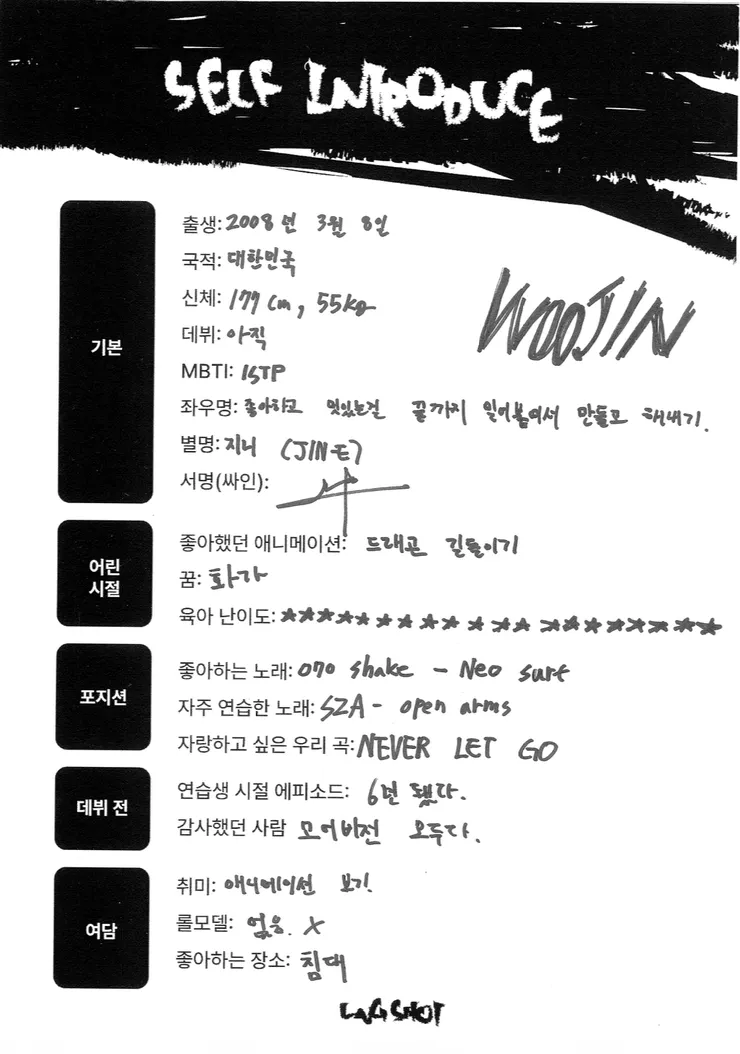 SELF INTRODUCE
기본
출생: 2008년 3월 8일
국적: 대한민국
신체: 177 cm, 55kg
데뷔: 아직
MBTI: ISTP
좌우명: 좋아하고 멋있는건 끝까지 밀어붙여서 만들고 해내기.
별명: 지니 (JIN-E)
서명(싸인):
WOOJIN
어린 시절
좋아했던 애니메이션: 드래곤 길들이기
꿈: 화가
육아 난이도: ★★★★★★★★★★★★★★★★★★★★★
포지션
좋아하는 노래: 070 shake - Neo surf
자주 연습한 노래: SZA - open arms
자랑하고 싶은 우리 곡: NEVER LET GO
데뷔 전
연습생 시절 에피소드: 6년 됐다.
감사했던 사람 모어비전 모두다.
여담
취미: 애니메이션 보기.
롤모델: 없음. X
좋아하는 장소: 침대
LNGSHOT